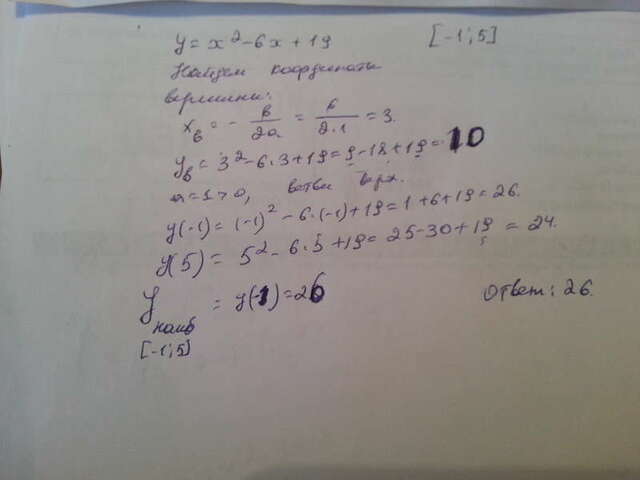 y = x² - 6x + 19 [-1; 5]
Найдем координаты
вершины:
x_в = - в/2a = 6/2·1 = 3.
y_в = 3² - 6·3 + 19 = 9 - 18 + 19 = 10
a = 1 > 0, ветви вверх.
y(-1) = (-1)² - 6·(-1) + 19 = 1 + 6 + 19 = 26.
y(5) = 5² - 6·5 + 19 = 25 - 30 + 19 = 24.
y наиб = y(-1) = 26 Ответ: 26.
[-1; 5]